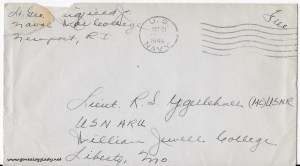 Lt. Geo
Naval War College
Newport, R.I.
U.S.
NAVY
1944
Free
Lieut. R. S. Yegerlehner (MC) USNR
USN ARU
William Jewell College
Liberty, Mo.
www.genealogylady.net